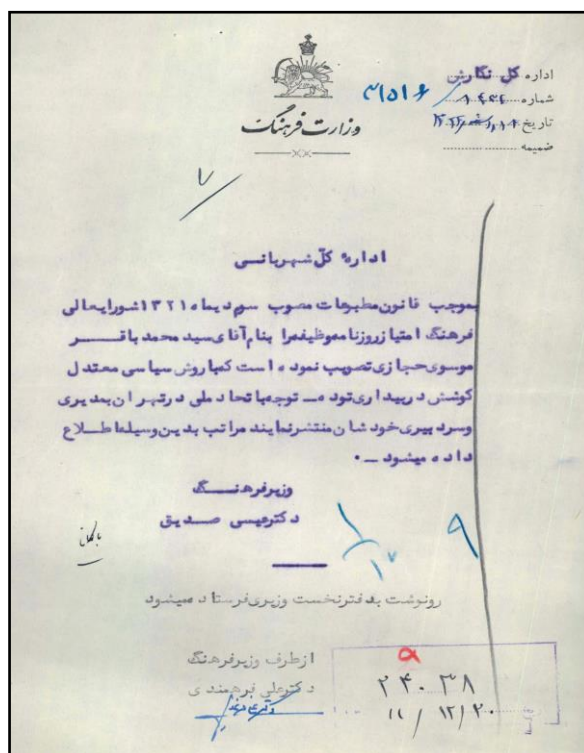 اداره کل نگارش
شماره
تاریخ
ضمیمه
وزارت فرهنگ
۷
اداره کلّ شهربانی
بموجب قانون مطبوعات مصوب سوم دیماه ۱۳۲۱ شورایعالی
فرهنگ امتیاز روزنامه وظیفه را بنام آقای سید محمد باقر
موسوی حجازی تصویب نموده است که با روش سیاسی معتدل
کوشش در بیداری توده ـ توجه باتحاد ملی در تهران بمدیری
وسردبیری خودشان منتشر نمایند مراتب بدین وسیله اطلاع
داده میشود ـ.
وزیر فرهنگ
دکتر عیسی صدیق
بایگانی
۹
رونوشت بدفتر نخست وزیری فرستاده میشود
از طرف وزیر فرهنگ
دکتر علی فرهمندی
۵
۲۴۰۳۸
۱۱/۱۲/۲۰